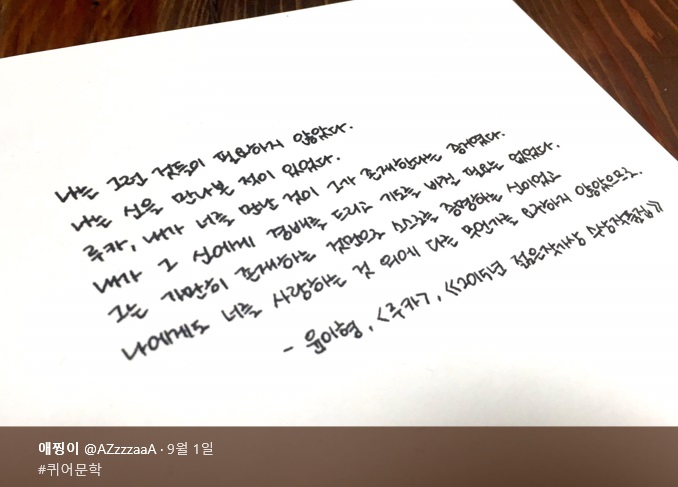 나는 그런 것들이 필요하지 않았다.
나는 신을 만나본 적이 있었다.
루카, 내가 너를 만난 것이 그가 존재한다는 증거였다.
내가 그 신에게 경배를 드리고 기도를 바칠 필요는 없었다.
그는 가만히 존재하는 것만으로 스스로를 증명하는 신이었고
나에게도 너를 사랑하는 것 외에 다른 무언가를 요구하지 않았으므로.
- 윤이형, <루카>, 《2015년 젊은작가상 수상작품집》
애찡이 @AZzzzaaA · 9월 1일
#퀴어문학